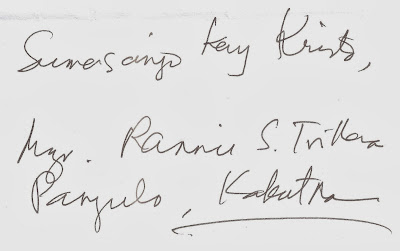 Sumasainyo kay Kristo,
Mgr. Rannie S. Trillera
Pangulo, Kabatma